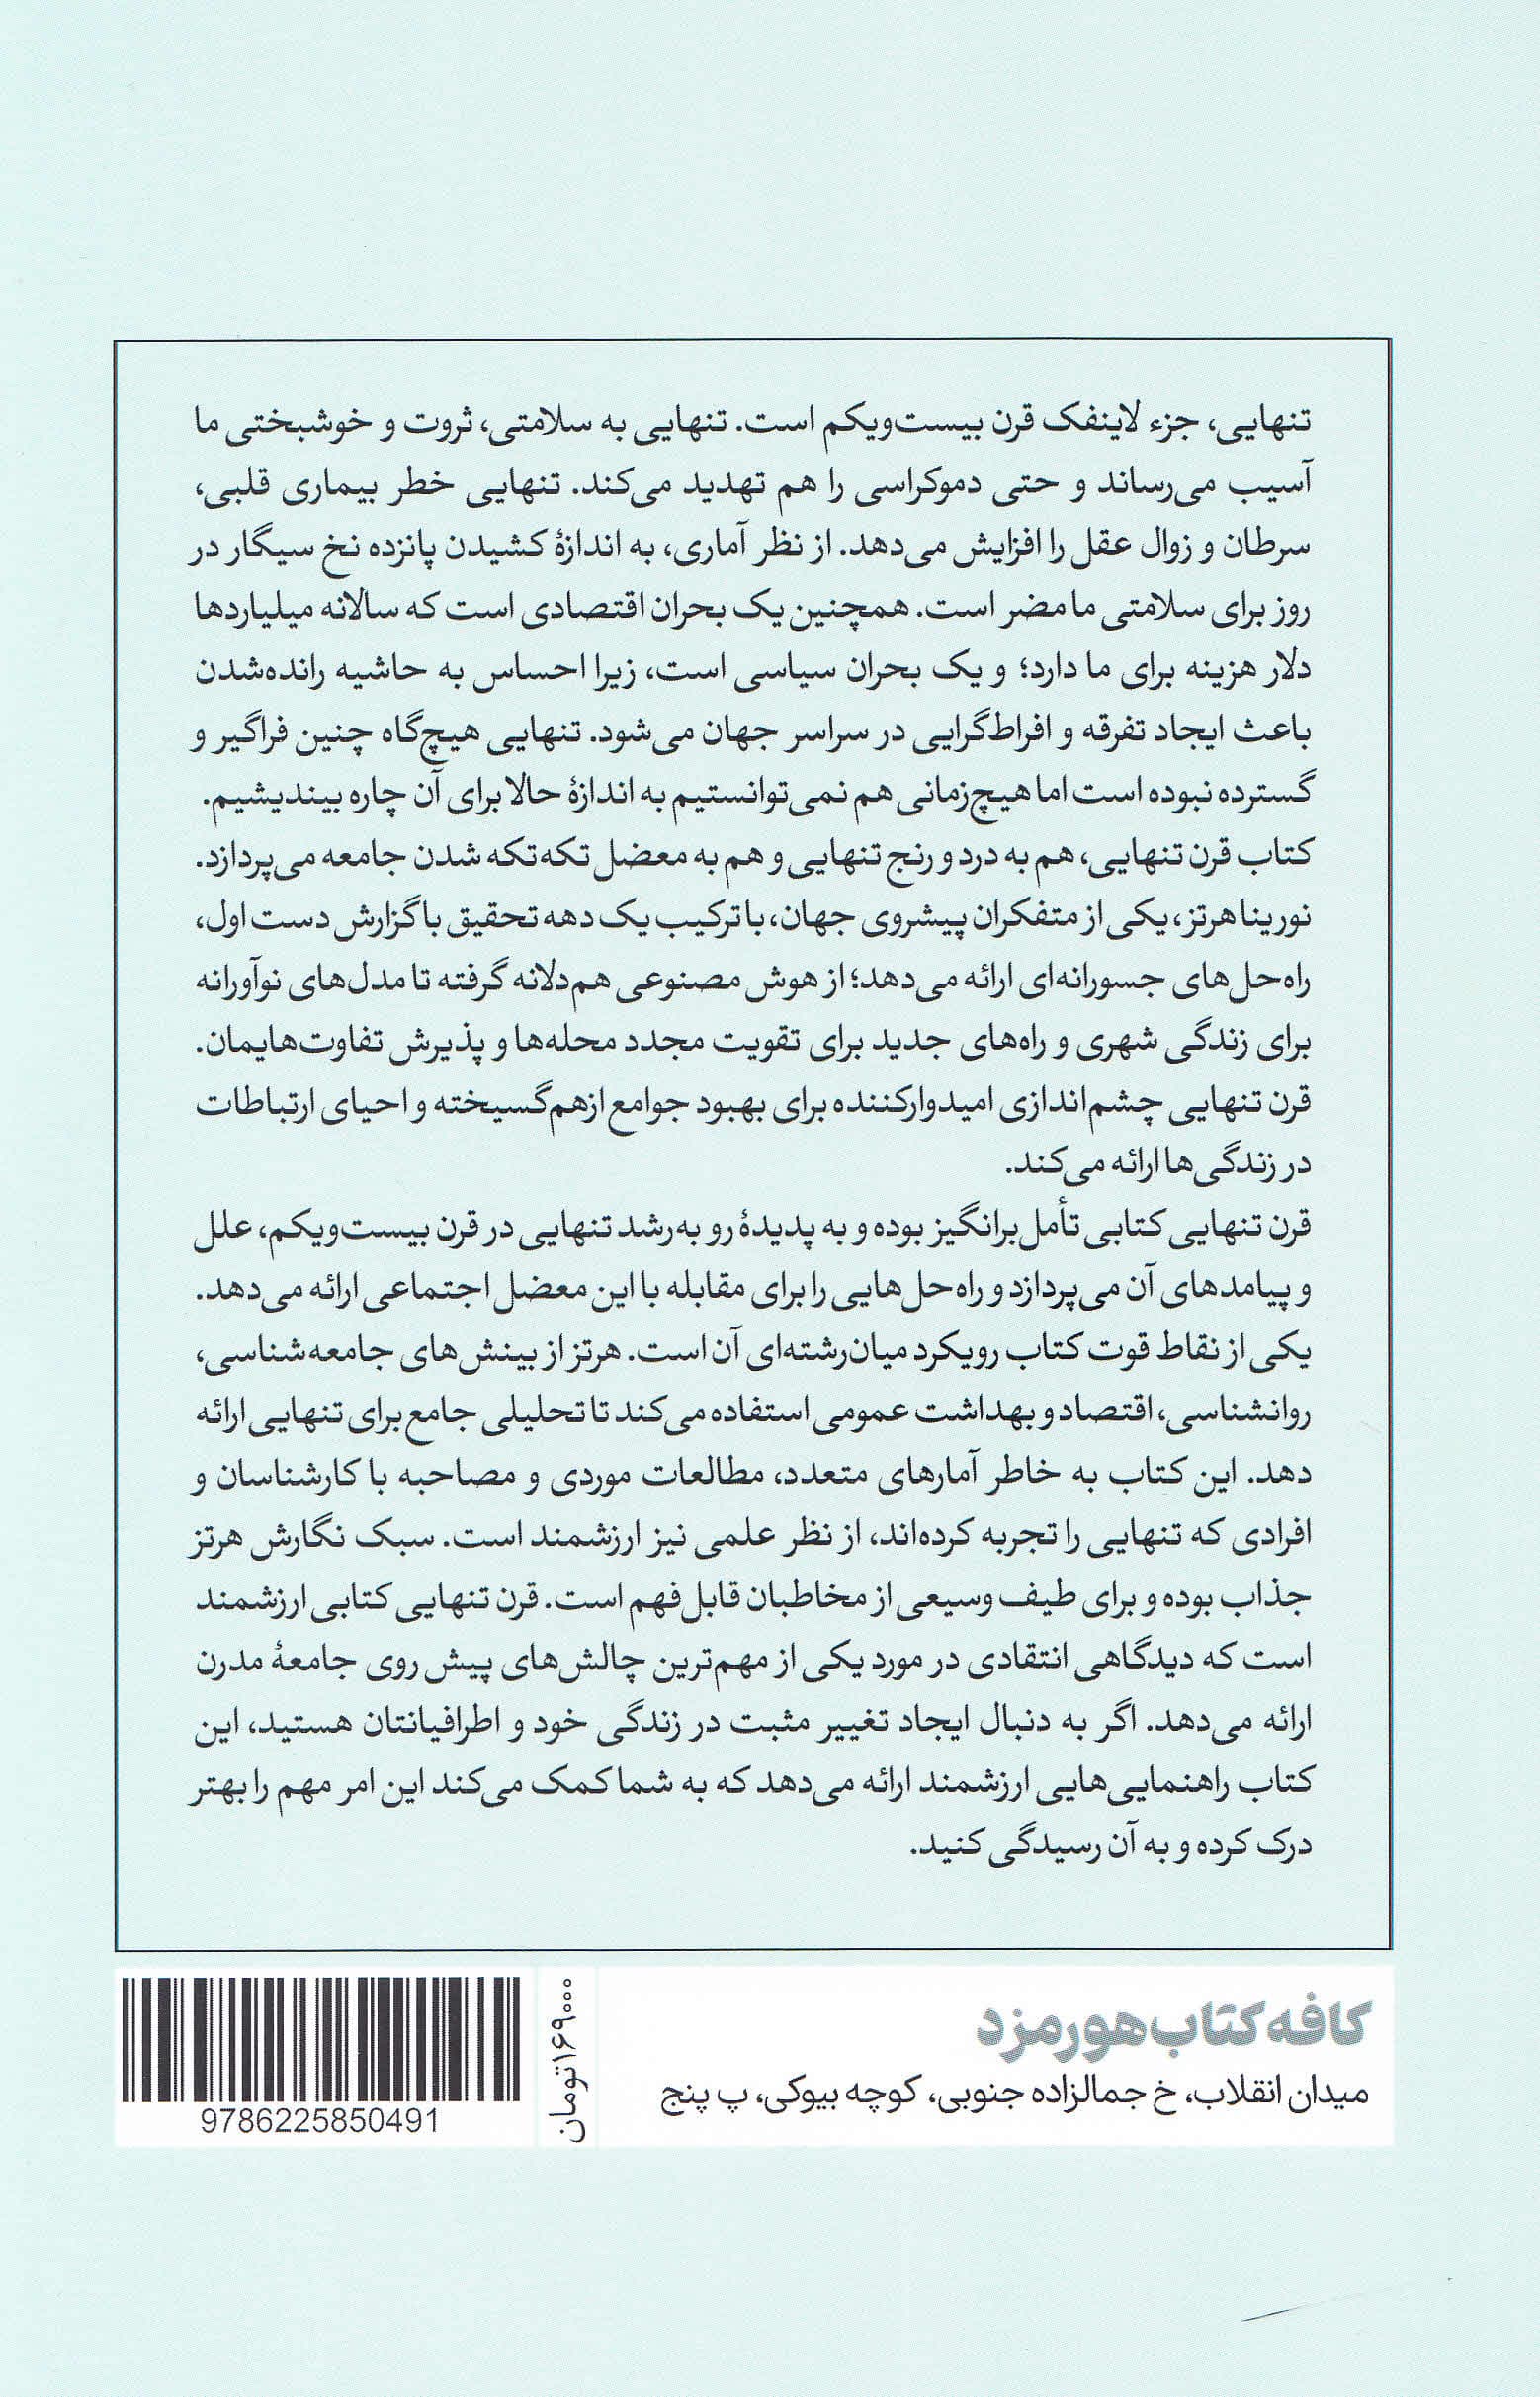 تنهایی، جزء لاینفک قرن بیست‌ویکم است. تنهایی به سلامتی، ثروت و خوشبختی ما
آسیب می‌رساند و حتی دموکراسی را هم تهدید می‌کند. تنهایی خطر بیماری قلبی،
سرطان و زوال عقل را افزایش می‌دهد. از نظر آماری، به اندازهٔ کشیدن پانزده نخ سیگار در
روز برای سلامتی ما مضر است. همچنین یک بحران اقتصادی است که سالانه میلیاردها
دلار هزینه برای ما دارد؛ و یک بحران سیاسی است، زیرا احساس به حاشیه رانده‌شدن
باعث ایجاد تفرقه و افراط‌گرایی در سراسر جهان می‌شود. تنهایی هیچ‌گاه چنین فراگیر و
گسترده نبوده است اما هیچ‌زمانی هم نمی‌توانستیم به اندازهٔ حالا برای آن چاره بیندیشیم.
کتاب قرن تنهایی، هم به درد و رنج تنهایی و هم به معضل تکه‌تکه شدن جامعه می‌پردازد.
نورینا هرتز، یکی از متفکران پیشروی جهان، با ترکیب یک دهه تحقیق با گزارش دست اول،
راه‌حل‌های جسورانه‌ای ارائه می‌دهد؛ از هوش مصنوعی هم‌دلانه گرفته تا مدل‌های نوآورانه
برای زندگی شهری و راه‌های جدید برای تقویت مجدد محله‌ها و پذیرش تفاوت‌هایمان.
قرن تنهایی چشم‌اندازی امیدوارکننده برای بهبود جوامع ازهم‌گسیخته و احیای ارتباطات
در زندگی‌ها ارائه می‌کند.
قرن تنهایی کتابی تأمل‌برانگیز بوده و به پدیدهٔ رو به‌رشد تنهایی در قرن بیست‌ویکم، علل
و پیامدهای آن می‌پردازد و راه‌حل‌هایی را برای مقابله با این معضل اجتماعی ارائه می‌دهد.
یکی از نقاط قوت کتاب رویکرد میان‌رشته‌ای آن است. هرتز از بینش‌های جامعه‌شناسی،
روانشناسی، اقتصاد و بهداشت عمومی استفاده می‌کند تا تحلیلی جامع برای تنهایی ارائه
دهد. این کتاب به خاطر آمارهای متعدد، مطالعات موردی و مصاحبه با کارشناسان و
افرادی که تنهایی را تجربه کرده‌اند، از نظر علمی نیز ارزشمند است. سبک نگارش هرتز
جذاب بوده و برای طیف وسیعی از مخاطبان قابل‌فهم است. قرن تنهایی کتابی ارزشمند
است که دیدگاهی انتقادی در مورد یکی از مهم‌ترین چالش‌های پیش روی جامعهٔ مدرن
ارائه می‌دهد. اگر به دنبال ایجاد تغییر مثبت در زندگی خود و اطرافیانتان هستید، این
کتاب راهنمایی‌هایی ارزشمند ارائه می‌دهد که به شما کمک می‌کند این امر مهم را بهتر
درک کرده و به آن رسیدگی کنید.
کافه کتاب هورمزد
میدان انقلاب، خ جمالزاده جنوبی، کوچه بیوکی، پ پنج
۱۶۹۰۰۰تومان
9786225850491